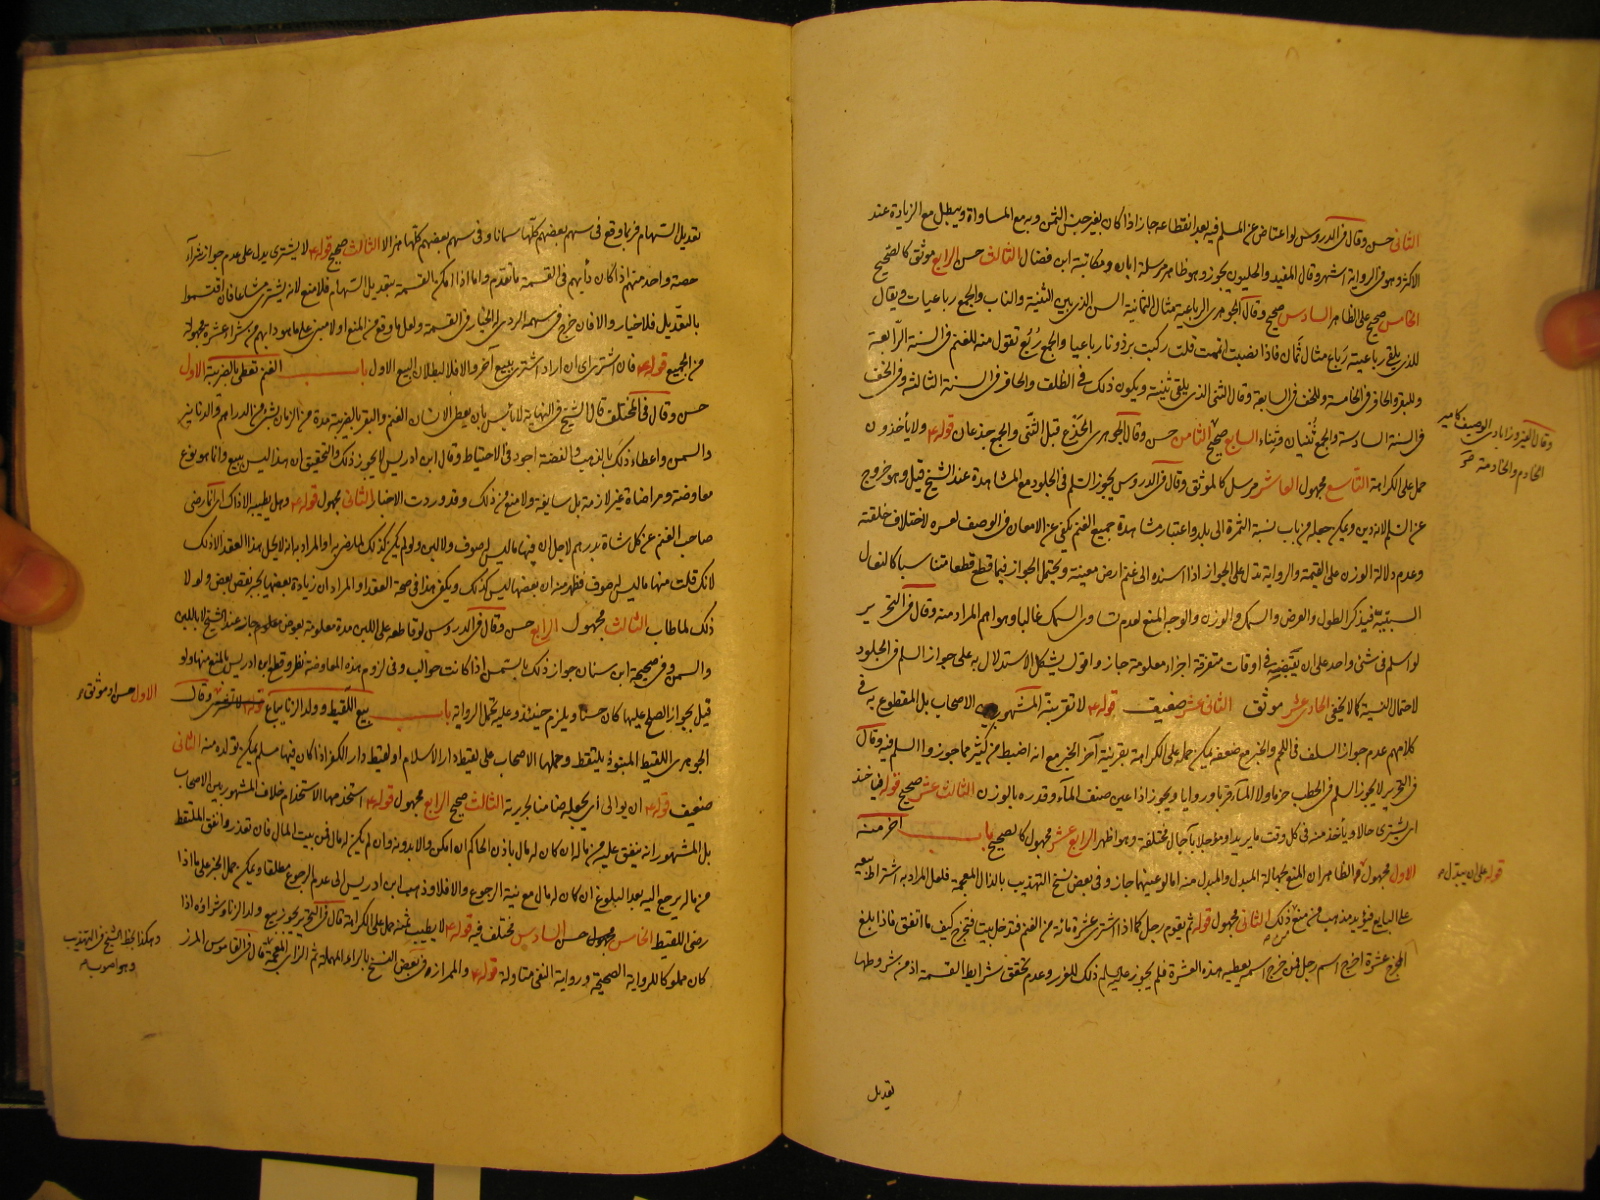 الثانى حسن وقال فى الدروس لو اعتاض عن المسلم فيه بعد انقطاعه جاز اذا كان بغير جنس الثمن وبه مع المساواة ويبطل مع الزيادة عند
الاكثر وهو فى الرواية اشهر وقال المفيد والحليون يجوز وهو ظاهر مرسلة ابان ومكاتبة ابن فضال الثالث حسن الرابع موثق كالصحيح
الخامس صحيح على الظاهر السادس صحيح وقال الجوهرى الرباعية مثال الثمانية السن الذى بين الثنية والناب والجمع رباعيات ويقال
للذى يلقى رباعيته رباع مثال ثمان فاذا نصبت اتممت قلت ركبت برذونا رباعيا والجمع ربع تقول منه للغنم فى السنة الرابعة
وللبقر والحافر فى الخامسة وللخف فى السابعة وقال الثنى الذى يلقى ثنيته ويكون ذلك فى الظلف والحافر فى السنة الثالثة وفى الخف
فى السنة السادسة والجمع ثنيان وثناء السابع صحيح الثامن حسن وقال الجوهرى الجذع قبل الثنى والجمع جذعان قوله ع ولا يأخذون
حمل على الكراهة التاسع مجهول العاشر مرسل كالموثق وقال فى الدروس يجوز السلم فى الجلود مع المشاهدة عند الشيخ قيل وهو خروج
عن السلم لانه دين ويمكن جعله من باب نسبة الثمرة الى بلد واعتبار مشاهدة جميع الغنم يكفى عن الامعان فى الوصف لعسره لاختلاف خلقته
وعدم دلالة الوزن على القيمة والرواية تدل على الجواز اذا اسنده الى غنم ارض معينة ويحتمل الجواز فيما قطع قطعا متناسبا كالنعال
السبتية فيذكر الطول والعرض والسمك والوزن والوجه المنع لعدم تساوى السمك غالبا وهو اهم المراد منه وقال فى التحرير
لو اسلم فى شئ واحد على ان يقبضه فى اوقات متفرقة اجزاء معلومة جاز واقول يشكل الاستدلال به على جواز السلم فى الجلود
لاحتمال النسية كما لا يخفى الحادى عشر موثق الثانى عشر ضعيف قوله ع لا تقربنه المشهور بين الاصحاب بل المقطوع به فى
كلامهم عدم جواز السلف فى اللحم والخبز مع ضعفه يمكن حمله على الكراهة بقرينة آخر الخبر مع انه اضبط من كثير مما جوزوا السلم فيه وقال
فى التحرير لا يجوز السلم فى الحطب حزما ولا الماء قربا وروايا ويجوز اذا عين صنف الماء وقدره بالوزن الثالث عشر صحيح قوله فياخذ
اى يشترى حالا ويأخذ منه فى كل وقت ما يريد او مؤجلا بآجال مختلفة وهو اظهر الرابع عشر مجهول كالصحيح باب آخر منه
الاول مجهول والظاهر ان المنع لجهالة المبدل والمبدل منه اما لو عينهما جاز وفى بعض نسخ التهذيب بالذال المعجمة فلعل المراد به اشتراط بيعه
على البايع فيؤيد مذهب من منع ذلك الثانى مجهول قوله ثم يقوم رجل كما اذا اشترى عشرة مائة من الغنم فتدخل بيت فتخرج كيف ما اتفق فاذا بلغ
الخرج عشرة اخرج اسم رجل فمن خرج اسمه يعطيه هذه العشرة فلم يجوز عليه السلم ذلك للغرر وعدم تحقق شرايط القسمة اذ من شروطها
تعديل
وقال الفيروزابادى الوصيف كامير
الخادم والخادمة
قوله على ان يبدل
تعديل السهام فربما وقع فى سهم بعضهم كلها سمانا وفى سهم بعضهم كلها هزالا الثالث صحيح قوله ع لا يشترى يدل على عدم جواز شراء
حصة واحد منهم اذا كان دأبهم فى القسمة ما تقدم واما اذا امكن القسمة بتعديل السهام فلا منع لانه يشترى مشاعا فان اقتسموا
بالتعديل فلا خيار والا فان خرج فى سهمه الردى له الخيار فى القسمة ولعل ما وقع من المنع اولا مبنى على ما هو دابهم من شراء عشرة مجهولة
من الجميع قوله ع فان اشترى اى ان اراد اشترى ببيع آخر والا فلا لبطلان البيع الاول باب الغنم تعطى بالضريبة الاول
حسن وقال فى المختلف قال الشيخ فى النهاية لا باس بان يعطى الانسان الغنم والبقر بالضريبة مدة من الزمان بشئ من الدراهم والدنانير
والسمن واعطاء ذلك بالذهب والفضة اجود فى الاحتياط وقال ابن ادريس لا يجوز ذلك والتحقيق ان هذا ليس ببيع وانما هو نوع
معاوضة ومراضاة غير لازمة بل سايغة ولا منع من ذلك وقد وردت الاخبار الثانى مجهول قوله ع وهل يطيبه الا ذاك اى انما رضى
صاحب الغنم عن كل شاة بدرهم لاجل ان فيها ما ليس له صوف ولا لبن ولو لم يكن كذلك لما رضى به او المراد به انه لا يحل هذا العقد الا ذلك
لانك قلت منها ما ليس له صوف فظهر منه ان بعضها ليس كذلك ويكفى هذا فى صحة العقد او المراد ان زيادة بعضها يجبر نقص بعض ولو لا
ذلك لما طاب الثالث مجهول الرابع حسن وقال فى الدروس لو قاطعه على اللبن مدة معلومة بعوض معلوم جاز عند الشيخ لا باللبن
والسمن وفى صحيحة ابن سنان جواز ذلك بالسمن اذا كانت حوالب وفى لزوم هذه المعاوضة نظر وقطع ابن ادريس بالمنع منها ولو
قيل بجواز الصلح عليها كان حسنا ويلزم حينئذ وعليه تحمل الرواية باب بيع اللقيط وولد الزنا قوله لا تشتر وقال
الجوهرى اللقيط المنبوذ يلتقط وحملها الاصحاب على لقيط دار الاسلام او لقيط دار الكفر اذا كان فيها مسلم يمكن تولده منه الثانى
ضعيف قوله ع ان يوالى اى يجعله ضامنا لجريرته الثالث صحيح الرابع مجهول قوله ع استخدمها الاستخدام خلاف المشهور بين الاصحاب
بل المشهور انه ينفق عليه من ماله ان كان له مال باذن الحاكم ان امكن والا بدونه وان لم يكن له مال فمن بيت المال فان تعذر وانفق الملتقط
من ماله يرجع اليه بعد البلوغ ان كان له مال مع نية الرجوع والا فلا وذهب ابن ادريس الى عدم الرجوع مطلقا ويمكن حمل الخبر على ما اذا
رضى اللقيط الخامس مجهول حسن السادس مختلف فيه قوله ع لا يطيب ثمنه حمل على الكراهة قال فى التحرير يجوز بيع ولد الزنا وشراؤه اذا
كان مملوكا للرواية الصحيحة ورواية النفى متاولة قوله ع والممرازه فى بعض النسخ بالراء المهملة ثم الزاى المعجمة قال فى القاموس المرز
الاول حسن او موثق
وهكذا بخط الشيخ فى التهذيب
وهو اصوب